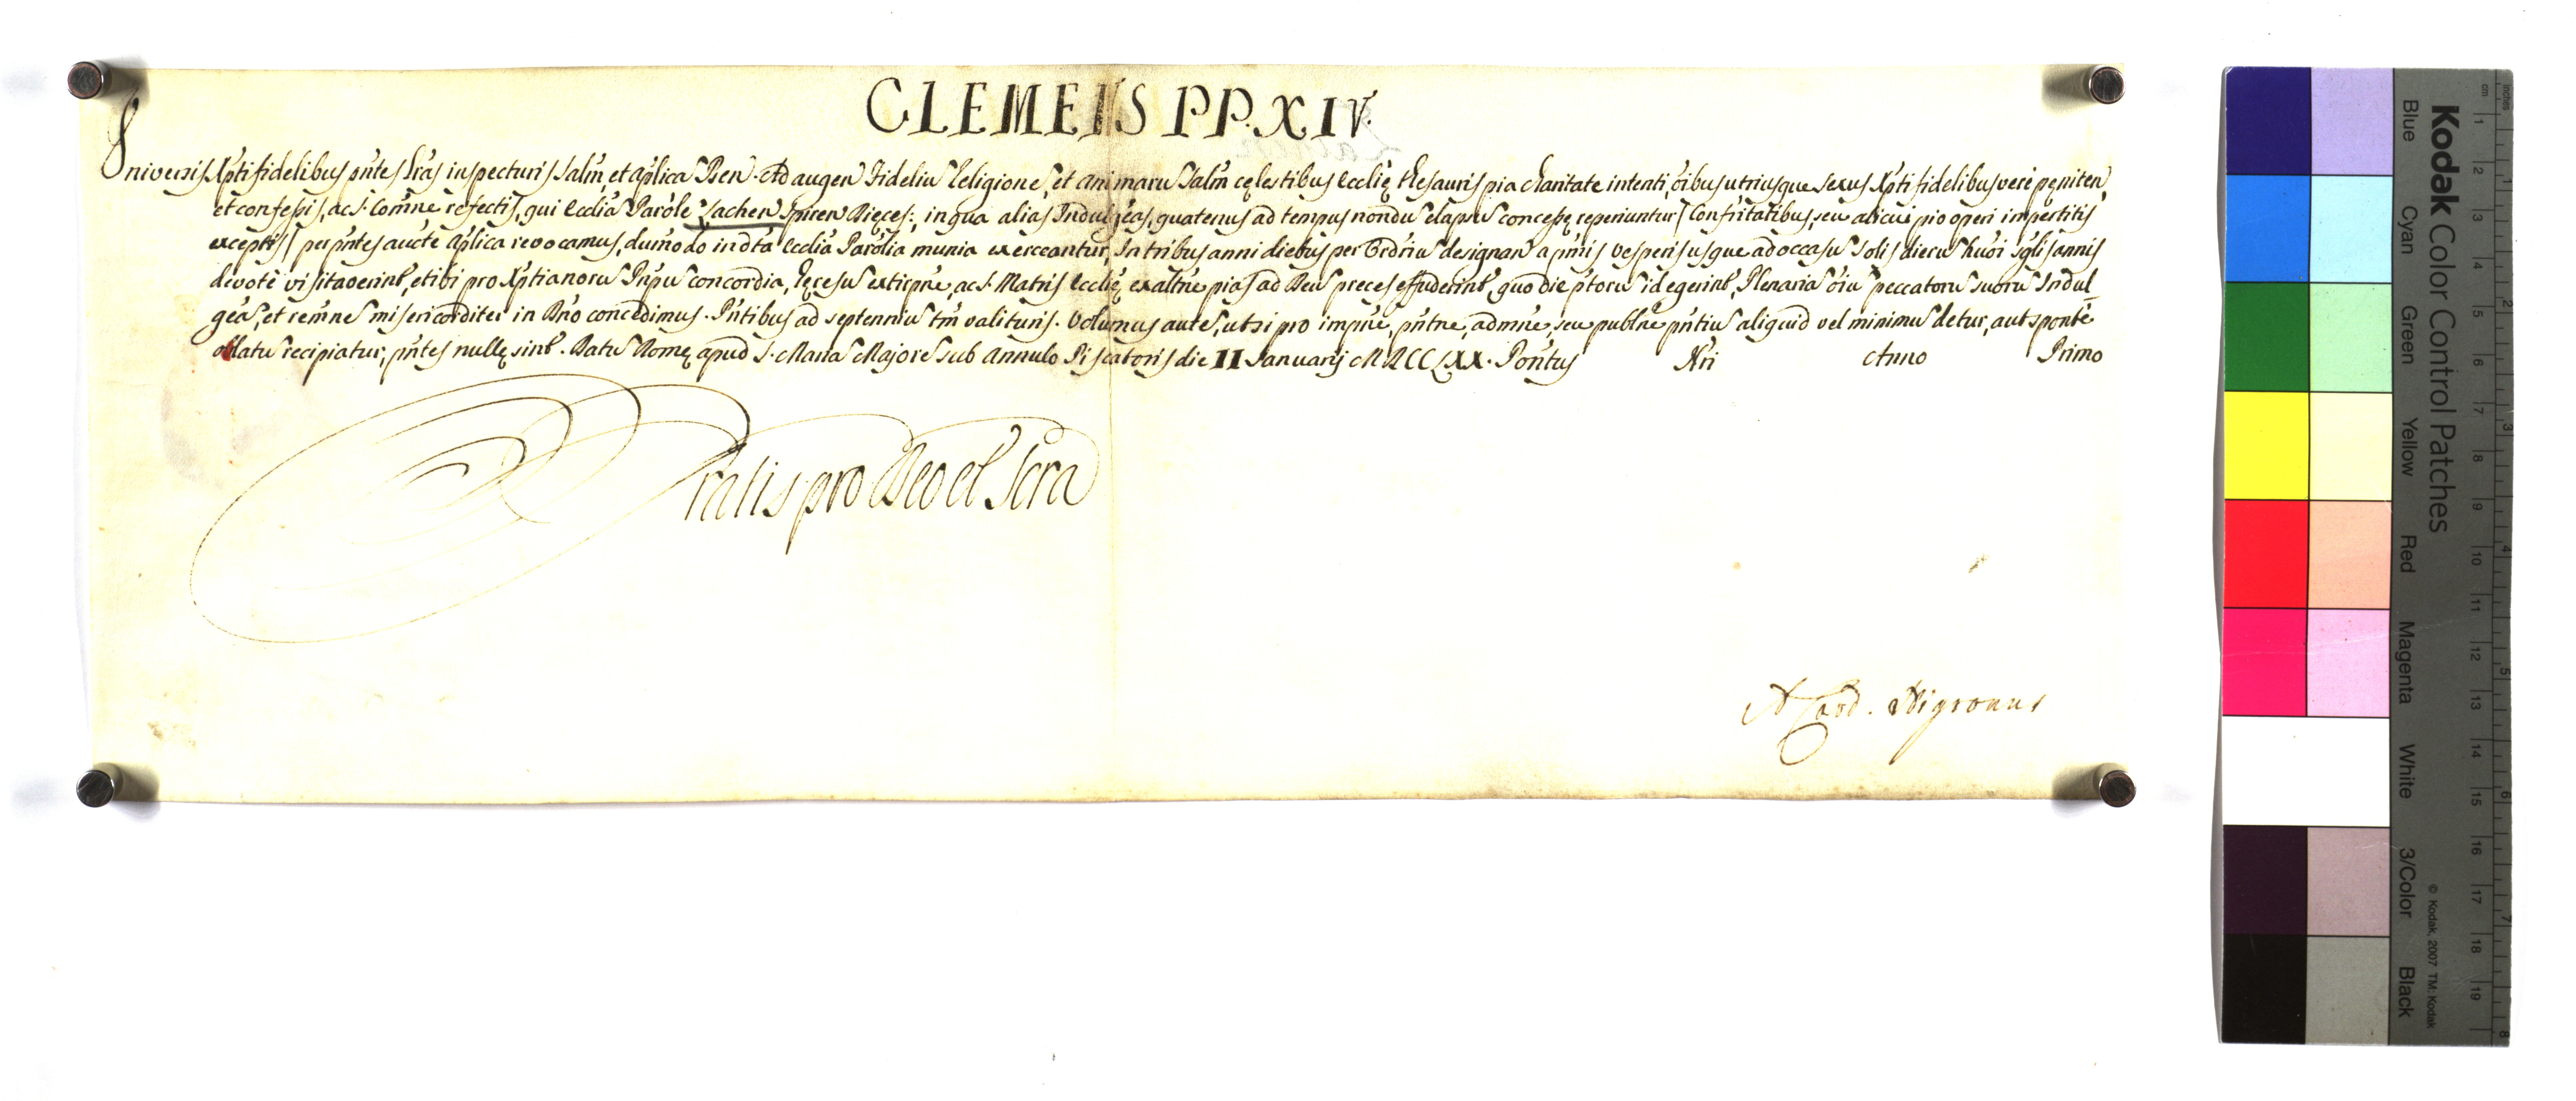 CLEMENS PP. XIV.
Universis Xpti fidelibus pntes lras inspecturis Salm, et aplica Ben. Ad augen Fideliu Religione, et animaru Salm cęlestibus Ecclię thesauris pia charitate intenti, oibus utriusque sexus Xpti fidelibus verè pęniten,
et confessis, ac S. Comne refectis, qui Ecclia Parole Lachen Spiren Dięces:, in qua alias Indulgeas, quatenus ad tempus nondu elapsu concessę reperiuntur / Confritatibus, seu alicui pio operi impertitis
exceptis / per pntes aucte aplica revocamus, dumodo in dta Ecclia Parolia munia exerceantur, In tribus anni diebus per Ordriu designan a pmis Vesperis usque ad occasu Solis dieru huoi sglis annis
devotè visitaverint, et ibi pro Xptianoru Pnpu concordia, hęresu extirpne, ac S. Matris Ecclię exaltne pias ad Deu preces effuderint, quo die ptoru id egerint, Plenaria oiu peccatoru suoru Indul
geas, et remne misericorditer in Dno concedimus. Pntibus ad septenniu tm valituris. Volumus aute, ut si pro impne, pntne, admne, seu publne pntiu aliquid vel minimu detur, aut spontè
oblatu recipiatur, pntes nullę sint. Datu Romę apud S. Maria Majore sub Annulo Piscatoris die II Januarij MDCCLXX. Pontus Nri Anno Primo
Gratis pro Deo et Scra
A Card. Nigronus
Kodak Color Control Patches
Blue Cyan Green Yellow Red Magenta White 3/Color Black
© Kodak, 2007 TM: Kodak
inches
cm
1 2 3 4 5 6 7 8 9 10 11 12 13 14 15 16 17 18 19
1 2 3 4 5 6 7 8